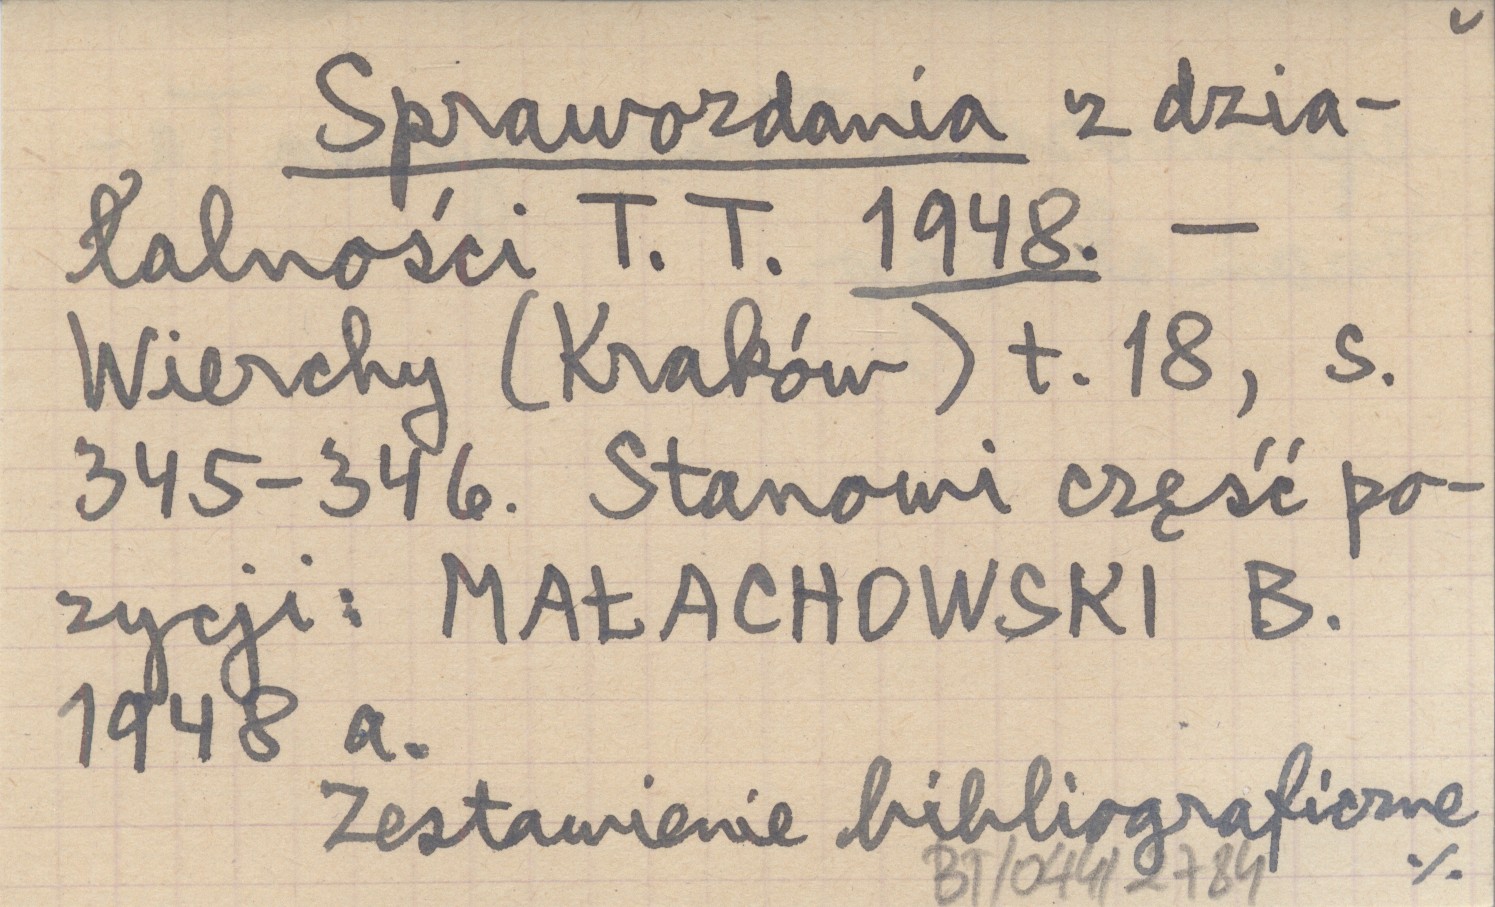 Sprawozdania z dzia-
łalności T.T. 1948. —
Wierchy (Kraków) t. 18, s.
345-346. Stanowi część po-
zycji: MAŁACHOWSKI B.
1948 a.
Zestawienie bibliograficzne
./.